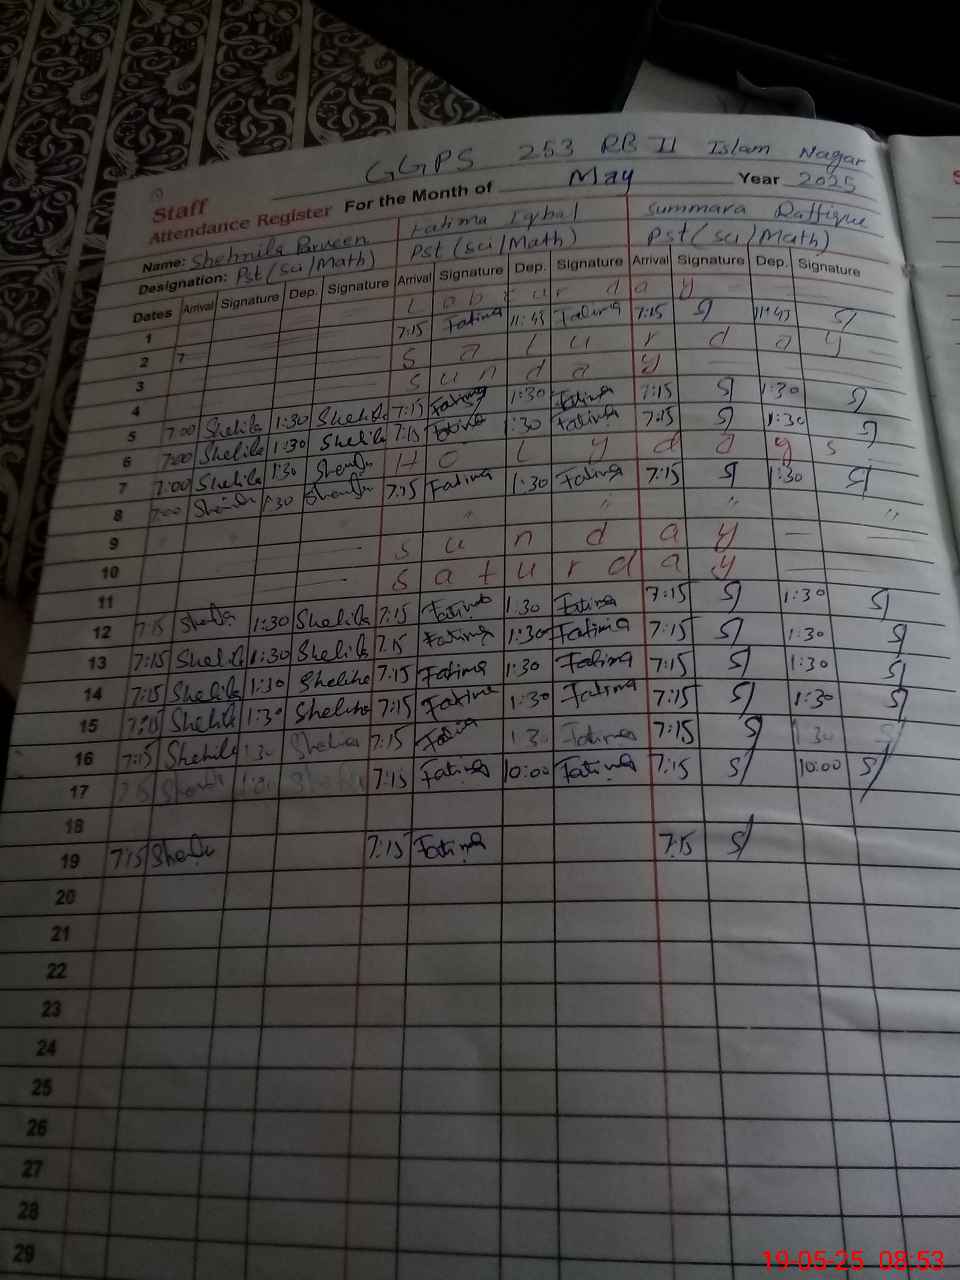 GGPS 253 RB II Islam Nagar
Staff
Attendance Register For the Month of May Year 2025
Name: Shehnila Parveen Fatima Iqbal Summara Raffique
Designation: Pst (sci/Math) Pst (sci/Math) Pst (sci/Math)
Dates Arrival Signature Dep. Signature Arrival Signature Dep. Signature Arrival Signature Dep. Signature
1 Labour day
2 7:15 Fatima 11:45 Fatima 7:15 S 11:45 S
3 Saturday
4 Sunday
5 7:00 Shehila 1:30 Shehila 7:15 Fatima 1:30 Fatima 7:15 S 1:30 S
6 7:00 Shehila 1:30 Shehila 7:15 Fatima 1:30 Fatima 7:15 S 1:30 S
7 7:00 Shehila 1:30 Holydays
8 7:00 1:30 7:15 Fatima 1:30 Fatima 7:15 S 1:30 S
9 " " " "
10 Sunday
11 Saturday
12 7:15 1:30 Shehila 7:15 Fatima 1:30 Fatima 7:15 S 1:30 S
13 7:15 Shehila 1:30 Shehila 7:15 Fatima 1:30 Fatima 7:15 S 1:30 S
14 7:15 Shehila 1:30 7:15 Fatima 1:30 Fatima 7:15 S 1:30 S
15 7:15 Shehila 1:30 7:15 Fatima 1:30 Fatima 7:15 S 1:30 S
16 7:15 Shehila 1:30 7:15 Fatima 1:30 Fatima 7:15 S 1:30 S
17 7:15 7:15 Fatima 10:00 Fatima 7:15 S 10:00 S
18
19 7:15 7:15 Fatima 7:15 S
20
21
22
23
24
25
26
27
28
29
19-05-25 08:53